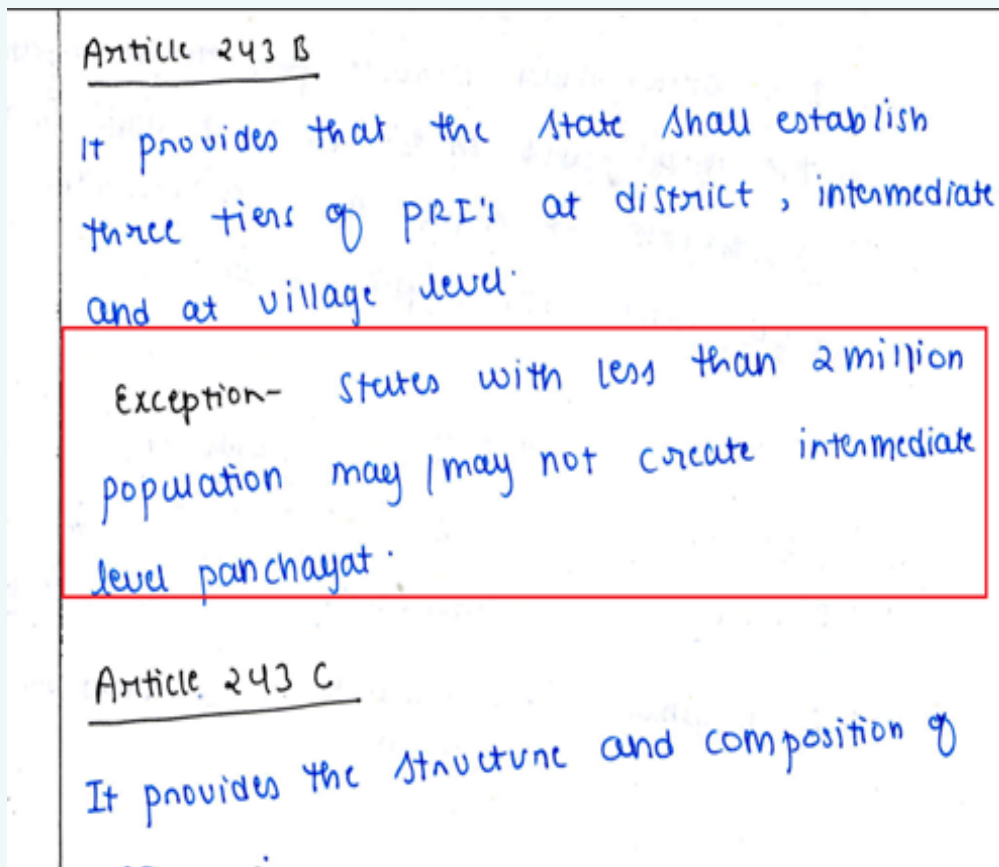 Article 243 B
It provides that the state shall establish
three tiers of PRI's at district, intermediate
and at village level.
Exception- States with less than 2 million
population may/may not create intermediate
level panchayat.
Article 243 C
It provides the structure and composition of